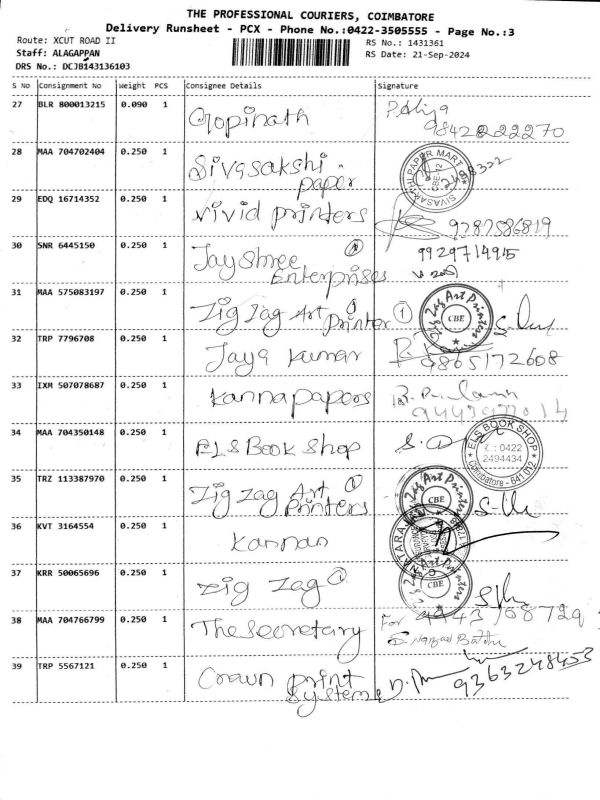 THE PROFESSIONAL COURIERS, COIMBATORE
Delivery Runsheet - PCX - Phone No.:0422-3505555 - Page No.:3
Route: XCUT ROAD II
RS No.: 1431361
Staff: ALAGAPPAN
RS Date: 21-Sep-2024
DRS No.: DCJB143136103
S No Consignment No Weight PCS Consignee Details Signature
27 BLR 800013215 0.090 1 Gopinath
9842222270
28 MAA 704702404 0.250 1 Sivasakshi paper
SIVASAKTHI PAPER MART CBE-12
29 EDQ 16714352 0.250 1 vivid printers
9787586819
30 SNR 6445150 0.250 1 Jayshree Enterprises
9929714915
31 MAA 575083197 0.250 1 Zig Zag Art Printer 1
Zig Zag Art Printers CBE
32 TRP 7796708 0.250 1 Jaya kumar
9865172608
33 IXM 507078687 0.250 1 kanna papers
34 MAA 704350148 0.250 1 ELS Book shop
ELS BOOK SHOP
: 0422
2494434
Coimbatore - 641 012
35 TRZ 113387970 0.250 1 Zig Zag Art Printers
Zig Zag Art Printers CBE
36 KVT 3164554 0.250 1 kannan
37 KRR 50065696 0.250 1 zig zag
Zig Zag Art Printers CBE
38 MAA 704766799 0.250 1 The Secretary
For
39 TRP 5567121 0.250 1 Crown print Systems
9363248453